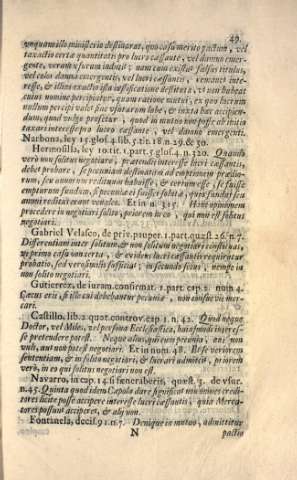 49.
unquam illo ministerio destituatur, quo casu merito pactum, vel
taxatio certæ quantitatis pro lucro cessante, vel damno emer-
gente, veram usuram induit; nam cum existat falsus titulus,
vel color damni emergentis, vel lucri cessantis, remanet inte-
resse, & illius exactio iusta iustificatione destituta, & non habeat
cuius nomine percipiatur, quam ratione mutui, ex quo lucrum
nullum percipi valet sine usurarum labe, & iuxta hæc accipien-
dum, quod vulgo profertur, quod in mutuo non posse ab initio
taxari interesse pro lucro cessante, vel damno emergenti.
Narbona, ley 15. glos. 4. lib. 5. tit. 18. n. 29. & 30.
Hermosilla, ley 10. tit. 1. part. 5. glos. 4. n. 320. Quando
verò non solitus negotiari, prætendit interesse lucri cessantis,
debet probare, se pecuniam destinatam ad emptionem prædio-
rum, seu annuorum reddituum habuisse, & certum esse, se fuisse
empturum fundum, si pecunia ei fuisset soluta, quia fundus seu
annui redditus erant venales. Et in n. 325. Hanc opinionem
procedere in negotiari solito, priorem in eo, qui non est solitus
negotiari.
Gabriel Velasco, de priv. pauper. 1. part. quæst. 26. n. 7.
Differentiam inter solitum, & non solitum negotiari constituat,
ut primo casu non certa, & evidens lucri cessantis requiratur
probatio, sed verosimilis sufficiat; in secundo secus, nempe in
non solito negotiari.
Gutierrez, de iuram. confirmat. 1. part. cap. 2. num. 4.
Cæterùs erit, si illi cui debebantur pecuniæ, non consuevit mer-
cari.
Castillo, lib. 2. quot. controv. cap. 1. n. 42. Quod neque
Doctor, vel Miles, vel persona Ecclesiastica, huiusmodi interes-
se prætendere potest. Neque alius, qui cum pecunia, aut non
vult, aut non potest negotiari. Et in num. 48. Et se veriorem
sententiam, & in solito negotiari, & lucrari admittit, priorem
verò, in eo qui solitus negotiari non est.
Navarro, in cap. 14. si fæneraberis, quæst. 3. de usur.
n. 45. Quinta quod idem Capola dare significat non omnes credi-
tores licitè posse accipere interesse lucri cessantis, quale Merca-
tores possunt accipere, & alij non.
Fontanela, decis. 91. n. 7. Denique in mutuo, admittitur
N
pactio